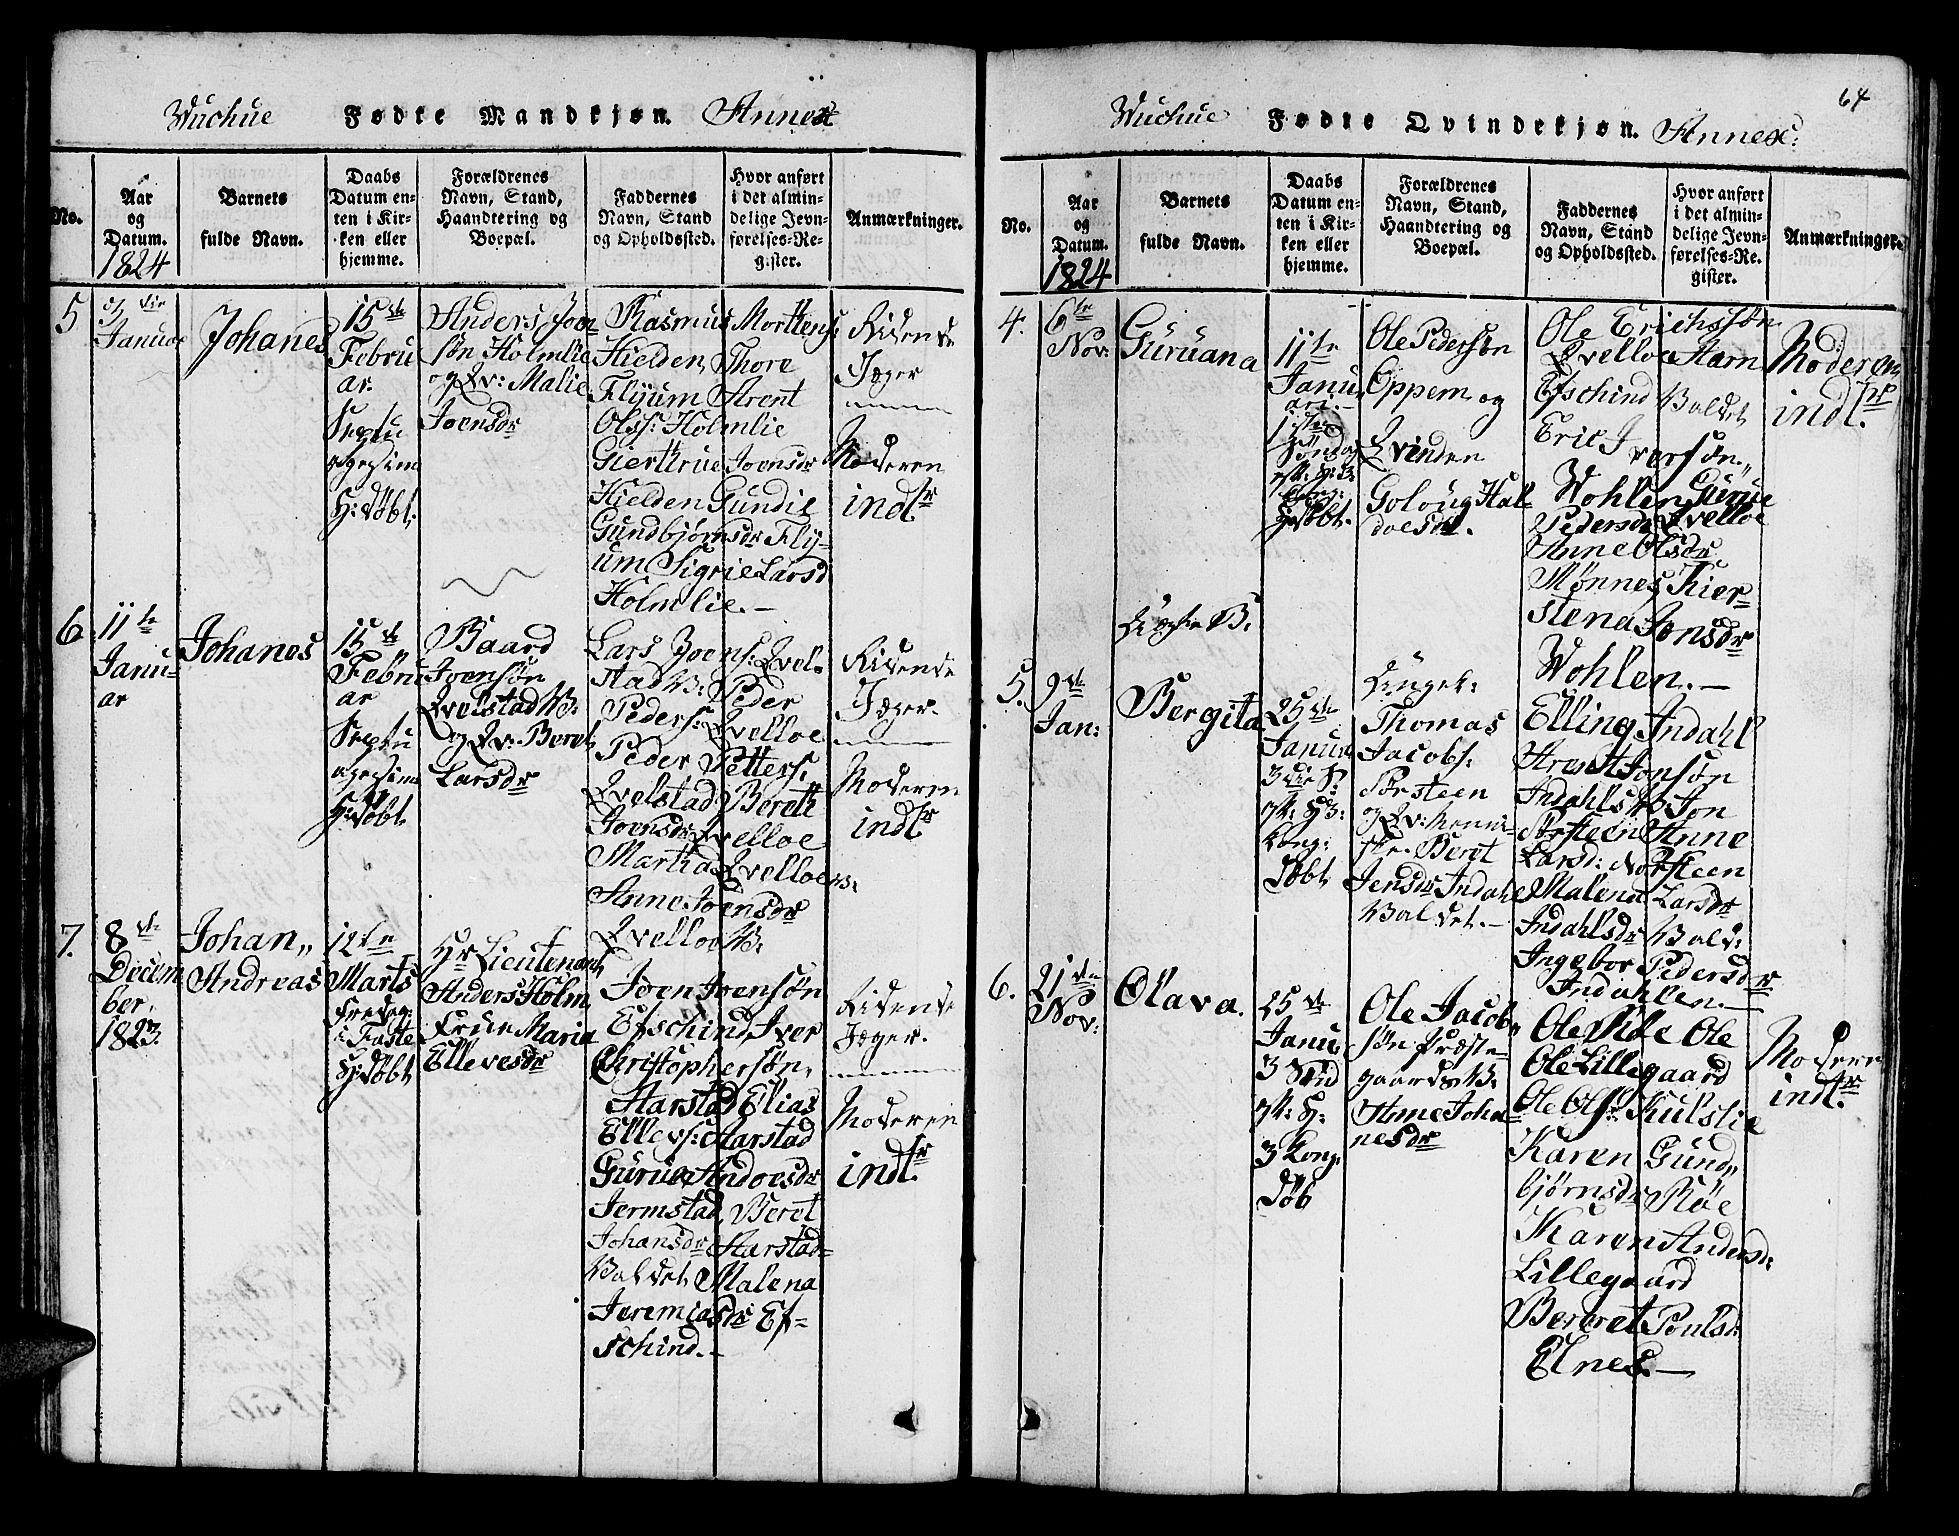 Vuchue Fødte Mandkjøn. Annex
No.
Aar
og
Datum.
1824
Barnets
fulde Navn.
Daabs
Datum en-
ten i Kir-
ken eller
hjemme.
Forældrenes
Navn, Stand,
Haandtering og
Boepæl.
Faddernes
Navn, Stand
og Opholdssted.
Hvor anført
i det almin-
delige Jevn-
førelses-Re-
gister.
Anmærkninger.
5
Januar
Johanes
15de
Febru
ar.
Septu
agesim
H: Døbt
Anders Joen
søn Holmlie
og Qv: Malie
Joensdr
Rasmus Mortens:
Hielden, Thore
Flyum Arent
Olss: Holmlie
Giertrue Joensdr
Hielden Gundie
Gundbjørnsdr Fly-
um Sigrie Larsd
Holmlie.-
Ridende
Jæger
Moderen
indl.r
6
11te
Janu-
ar
Johanes
15de
Febru
ar
Septu
agesim
H: Døbt
Baard
Joensøn
Qvelstad W:
og Qv: Beret
Larsdr
Lars Joens: Qvel-
stad W: Peder
Peders: Qvelloe
Peder Petters:
Qvelstad Bereth
Joensdr Qvelloe
Martha Qvelloe W:
Anne Joensdr
Qvelloe W:
Ridende
Jæger.
Moderen
indl.r
7.
8de
Decem
ber.
1823.
Johan„
Andreas
12te
Marts
Fredag
i Faste
H: Døbt
Hr Lieutenant
Anders Holm
Frue Maria
Ellevesdr
Joen Joensøn
Efschind, Iver
Christophersøn,
Aarstad Elias
Ellevs: Aarstad
Gurue Andoesdr
Jermstad, Beret
Johansdr Aarstad-
Valdet Malena
Jeremiasdr Ef-
schind.-
Ridende
Jæger.
Moderen
indl.r
64
Vuchue Fødte Qvindekjøn. Annex:
No.
Aar
og
Datum.
1824
Barnets
fulde Navn.
Daabs
Datum en-
ten i Kir-
ken eller
hjemme.
Forældrenes
Navn, Stand,
Haandtering og
Boepæl.
Faddernes
Navn, Stand
og Opholdssted.
Hvor anført
i det almin-
delige Jevn-
førelses-Re-
gister.
Anmærkninger.
4.
6te
Nov:
Guruana
11te
Janu
ari.
1ste
Søndag
Døbt.
Ole Pedersøn
Oppem og
Qvinden
Goloug Hall
doesdr.
Ole Erichssøn
Qvelloe Aarn
Efschind Valdet
Eric I
versøn„
Wohlen Gurue
Pedersdr Qvelloe
Anne Olsdr
Mønnes, Kier-
stena Jonsdr
Wohlen.-
Moderen
indl.r
5.
9de
Jan:
Bergita
25de
Janua
3die S:
Døbt
Thomas
Jacobs:
Porsteen
og Qv:
Beret
Jensdr Indahl
Valdet.-
Elling Indahl
Arent Jonsøn
Indahls W: Jon
Porsteen Anne
Larsd: Porsteen
Malena Larsdr
Indahlsdr Vald:
Ingebor Pedersdr
Indahlen.-
6.
21de
Nov:
Olava.
25de
Janu.
3 Sønd
3 Kong.
Døb
Ole Jacob„
søn Præste-
gaards W:
Anne Joha
nesdr
Ole Olde Ole
Ole Lillegaard
Ole Ols: Kulslie
Karen Gund„
bjørnsdr Røe
Karen Andersd:
Lillegaard
Berret Poulsdr
Elnes.-
Moderen
indl.r